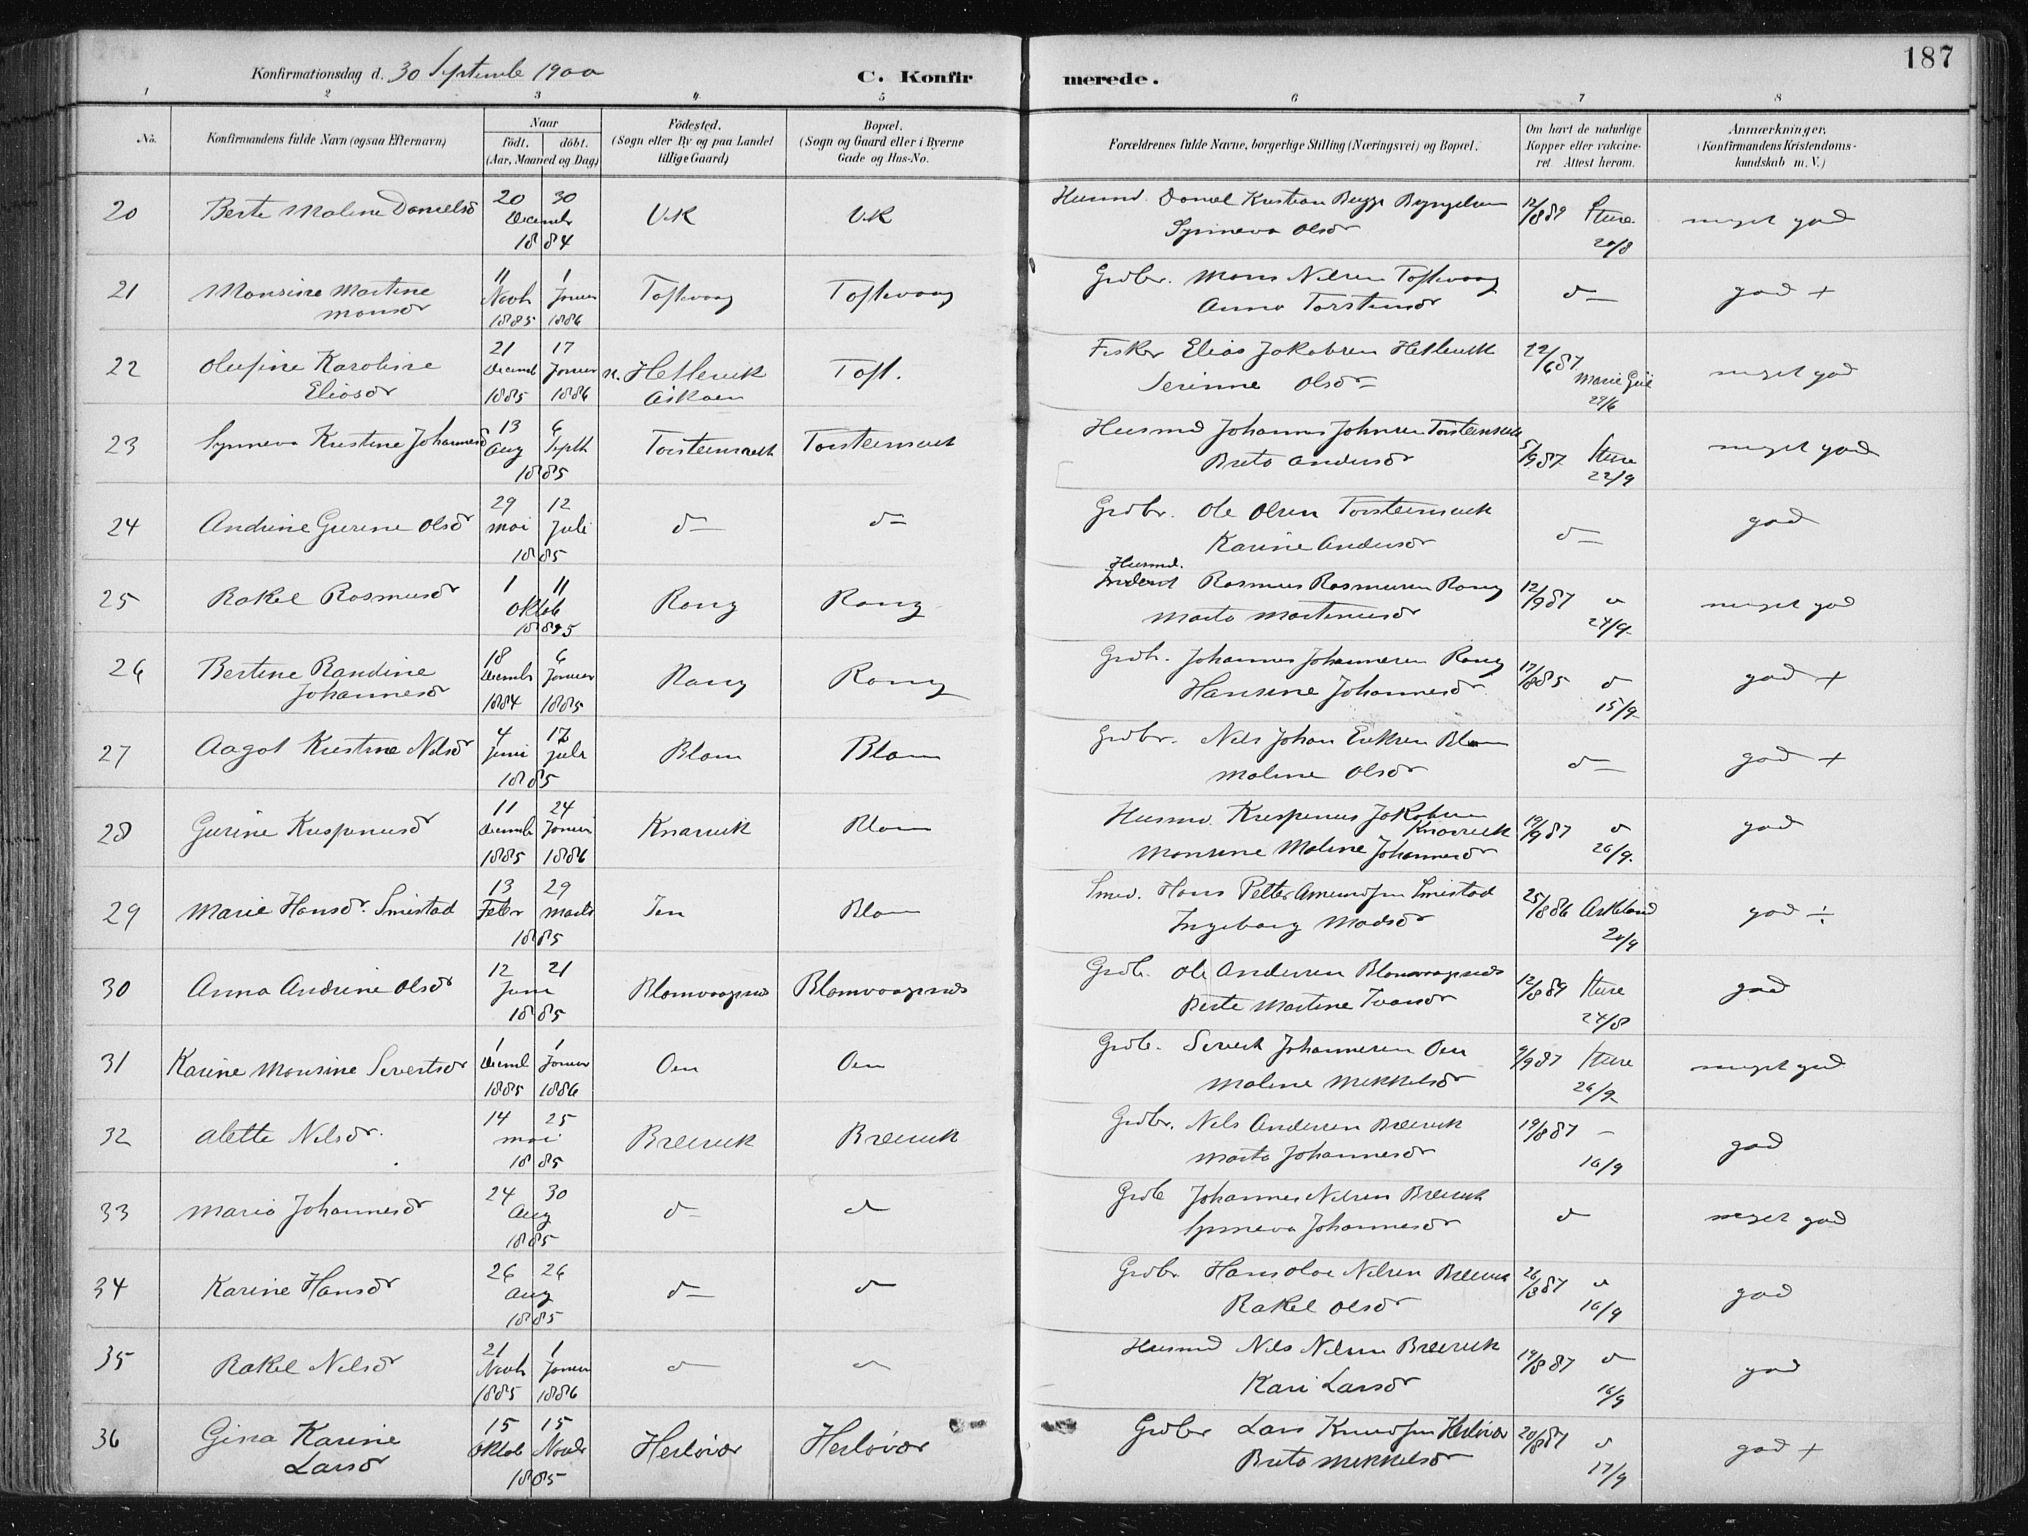 187
Konfirmationsdag d. 30 Septembr 1900
C. Konfirmerede.
1 2 3 4 5 6 7 8
No.
Konfirmandens fulde Navn (ogsaa Efternavn)
Naar
født. døbt.
(Aar, Maaned og Dag)
Fødested.
(Sogn eller By og paa Landet
tillige Gaard)
Bopæl.
(Sogn og Gaard eller i Byerne
Gade og Hus-No.
Forældrenes fulde Navne, borgerlige Stilling (Næringsvei) og Bopæl.
Om havt de naturlige
Kopper eller vakcine-
ret. Attest herom.
Anmærkninger,
(Konfirmandens Kristendoms-
kundskab m. V.)
20 Berte Malene Danielsd 20 30 Decembr 1884 Vik Vik Husmd. Daniel Kristian
Synneva Olsdr 12/8 89 Sture 20/8 meget god
21 Monsine Martine
Monsdr 11 Novbr 1885 1 Januar 1886 Toftevaag Toftevaag Grdbr. Mons Nilsen Toftevaag
Anna Torstensdr d— god +
22 Olufine Karoline
Eliasdr 21 Decemb 1885 17 Januar 1886 n. Hetlevik
Askøen Toft. Fisker Elias Jakobsen Hetlevik
Serinne Olsdr 22/6 87 29/6 meget god
23 Synneva Kristine Johannesd 13 Aug 6 Septb 1885 Torsteinsvik Torsteinsvik Husmd Johannes Johnsen Torsteinsvik
Brita Andersdr 5/9 87 Sture 22/9 meget god
24 Andrine Gurine Olsdr 29 Mai 12 Juli 1885 d— d— Grdbr. Ole Olsen Torsteinsvik
Karine Andersdr d— god
25 Rakel Rasmusdr 1 11 Oktob 1885 Rong Rong Husmd.
Rasmus Rasmusen Rong
Marta Martinusdr 12/9 87 d 24/9 meget god
26 Bertine Randine
Johannesdr 18 Decembr 1884 6 Januar 1885 Rong Rong Grdbr. Johannes Johannesen Rong
Hansine Johannesdr 17/8 85 d 15/9 god +
27 Aagot Kristine Nilsdr 4 Juni 12 Juli 1885 Blom Blom Grdbr. Nils Johan Eriksen Blom
Malene Olsdr d— god +
28 Gurine Krispinusdr 11 Decemb 1885 24 Januar 1886 Knarvik Blom Husmd. Krispinus Jakobsen
Knarvik
Monsine Malene Johannesdr 19/9 87 d 26/9 god
29 Marie Hansdr. Smestad 13 Febr 29 Marts 1885 Blom Smed. Hans Petter Amundsen Smestad
Ingeborg Madsdr 25/8 86 Askeland 20/9 god ÷
30 Anna Andrine Olsdr 12 21 Juni 1885 Blomvaagsnes Blomvaagsnes Grdb. Ole Andersen Blomvaagsnes
Berte Martine Ivarsdr 12/8 89 Sture 24/8 god
31 Karine Monsine Sivertsdr 1 Decmb 1885 1 Januar 1886 Oen Oen Grdb. Sivert Johannesen Oen
Malene Mikkelsdr 9/9 87 Sture 26/9 meget god
32 Alette Nilsdr. 14 25 Mai 1885 Breivik Breivik Grdbr. Nils Andersen Breivik
Marta Johannesdr 19/8 87 — 16/9 god
33 Maria Johannesdr 24 30 Aug 1885 d— d Grdb Johannes Nilsen Breivik
Synneva Johannesdr d meget god
34 Karine Hansdr 26 26 Aug 1885 d— d Grdbr Hans Olai Nilsen Breivik
Rakel Olsdr 26/8 87 d 16/9 god
35 Rakel Nilsdr 21 Novb 1885 1 Januar 1886 d— d Husmd Nils Nilsen Breivik
Kari Larsdr 19/8 87 d 16/9 god
36 Gina Karine
Larsdr 15 Oktob 15 Novbr 1885 Herløvær Herløvær Grdbr Lars Knudsen Herløvær
Brita Mikkelsdr 20/8 87 d 17/9 god +